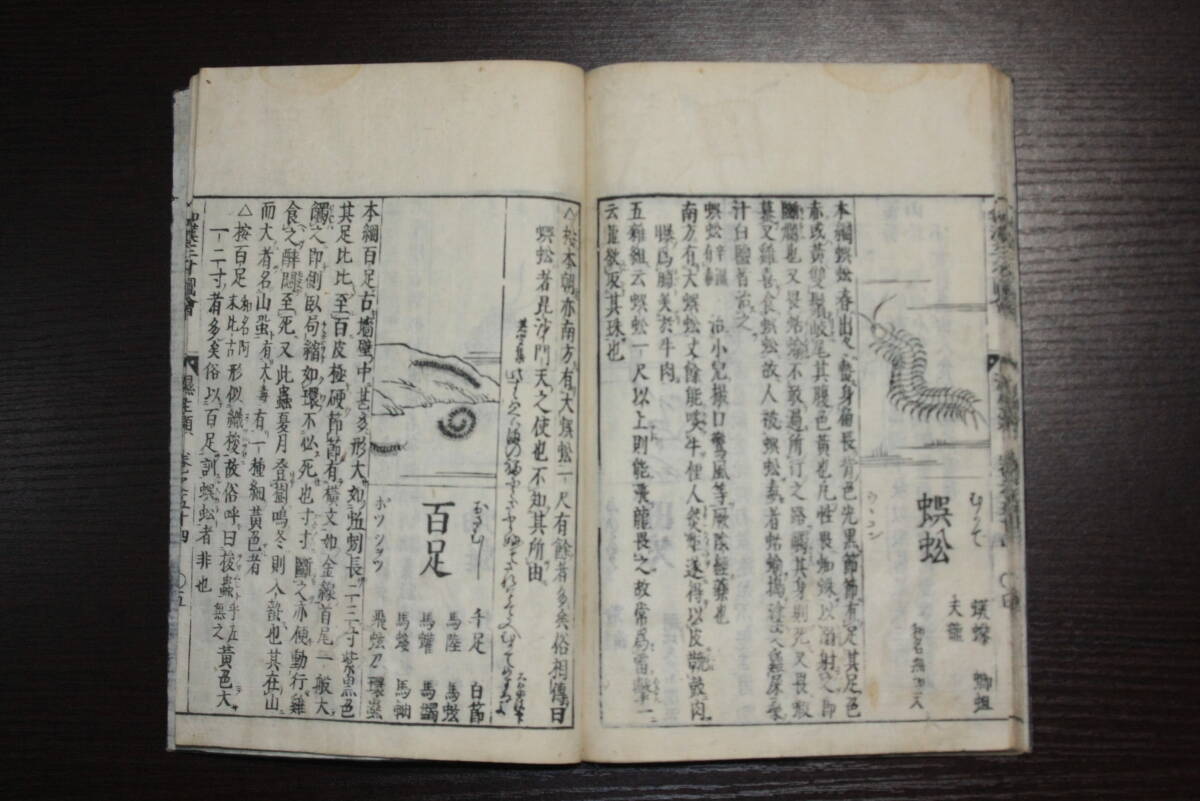 蜈蚣
むかで
蝍蛆
天龍
本綱蜈蚣春出冬蟄身扁長背色光黑節節有足其足色
赤或黃雙鬚岐尾其腹色黃也
其性畏蜘蛛以溺射之即
斷爛也又畏蛞蝓不敢過所行之路觸其身則死又畏蝦
蟇又雞喜食蜈蚣故人被蜈蚣毒者蛞蝓搗塗之雞尿桑
汁白鹽皆治之
蜈蚣辛溫有毒 治小兒撮口驚風等厥陰經藥也
南方有大蜈蚣丈餘能啖牛俚人
遂得以皮鞔鼓肉
曝爲脯美於牛肉
五雜組云蜈蚣一尺以上則能飛龍畏之故常爲雷擊一
云龍欲取其珠也
△按本朝亦南方有大蜈蚣一尺有餘者多矣俗相傳曰
蜈蚣者毘沙門天之使也不知其所由
百足
おさむし
ホツ ツヲツ
千足 白節
馬陸 馬蚿
馬蠲
馬軸
飛蚿刀 環蟲
本綱百足古墻壁中甚多形大如蚯蚓長二三寸紫黑色
其足比比至百皮極硬節節有橫文如金線首尾一般大
觸之即側臥局縮如環不必死也寸寸斷之亦便動行雞
食之醉悶至死又此蟲夏月登樹鳴冬則入蟄也其在山
而大者名山蛩有大毒有一種細黃色者
△按百足和名阿末比古形似織梭故俗呼曰梭蟲
黃色大
一二寸者多矣俗以百足訓蜈蚣者非也
濕生類